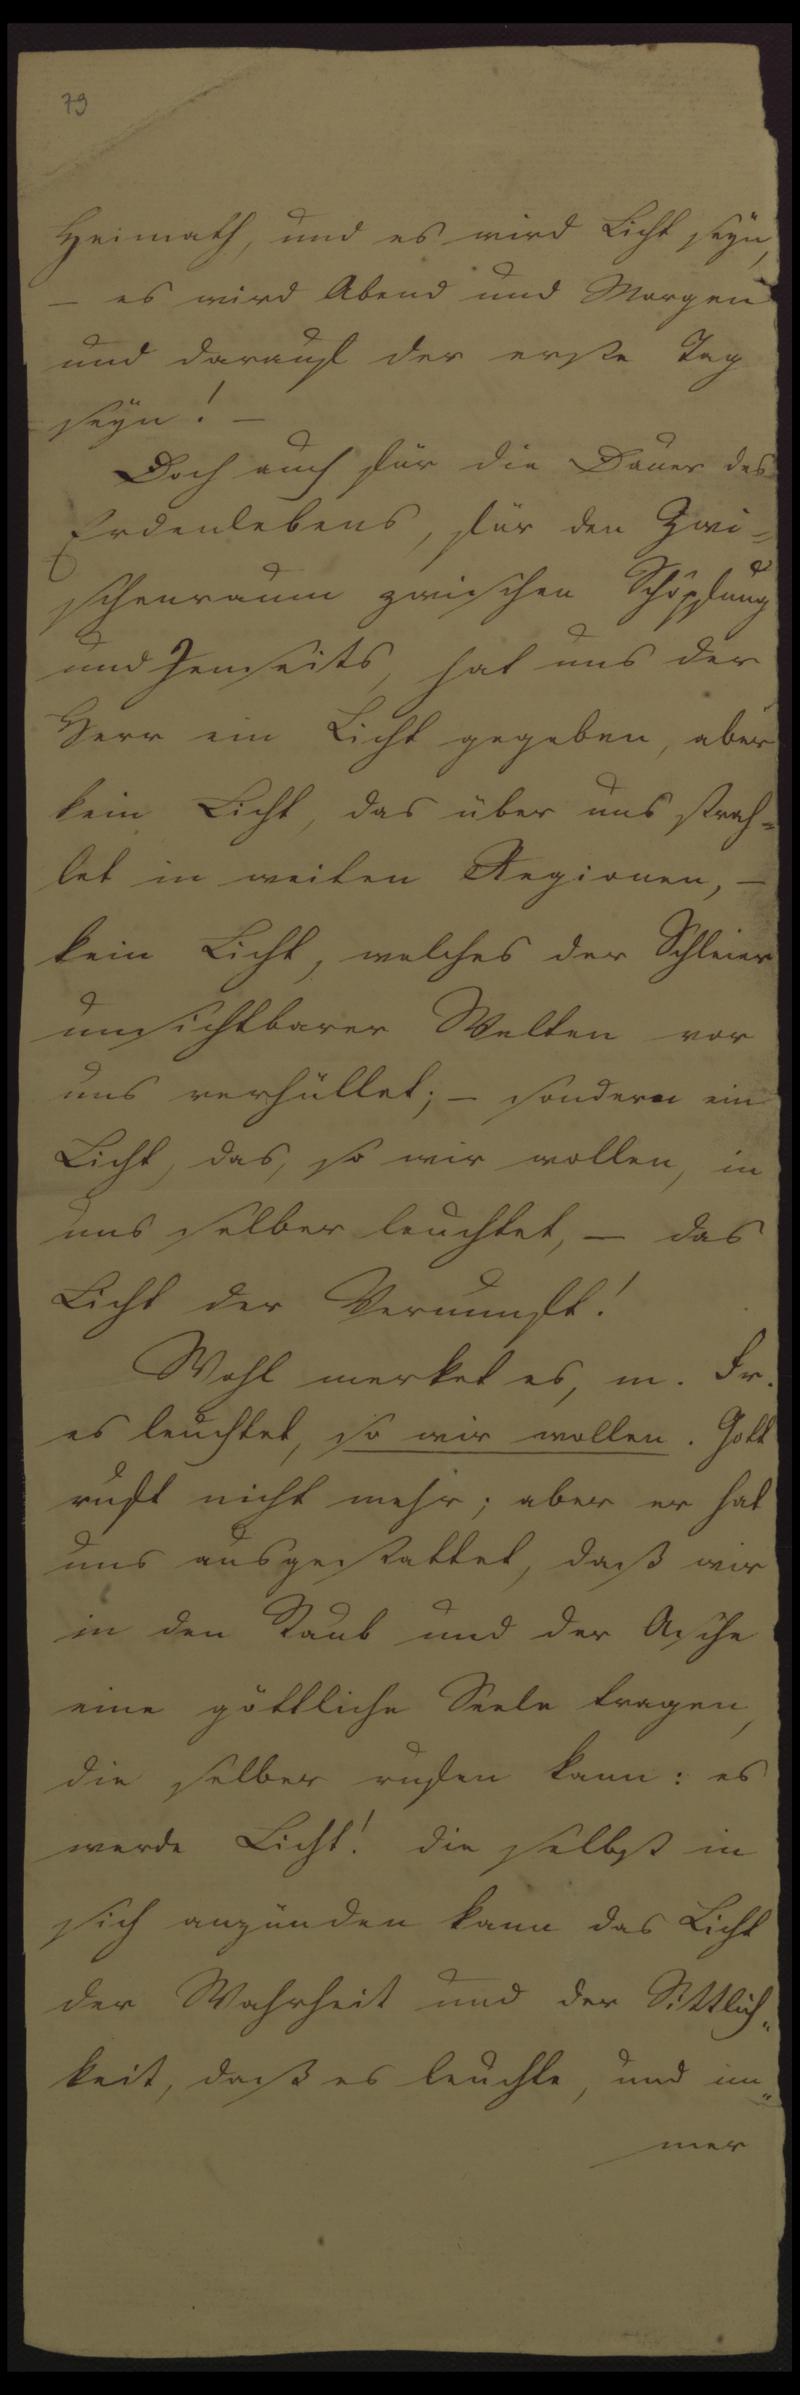 79
Heimath, und es wird Licht seyn,
– es wird Abend und Morgen
und darauf der erste Tag
seyn! –
Doch auch für die Dauer des
Erdenlebens, für den Zwi=
schenraum zwischen Schöpfung
und Jenseits, hat uns der
Herr ein Licht gegeben, aber
kein Licht, das über uns strah=
let in weiten Regionen, –
kein Licht, welches der Schleier
unsichtbarer Welten vor
uns verhüllet; – sondern ein
Licht, das, so wir wollen, in
uns selber leuchtet, – das
Licht der Vernunft!
Wohl merket es, m. Fr.
es leuchtet, so wir wollen. Gott
ruft nicht mehr; aber er hat
uns ausgestattet, daß wir
in den Staub und der Asche
eine göttliche Seele tragen,
die selber rufen kann: es
werde Licht! die selbst in
sich anzünden kann das Licht
der Wahrheit und der Sittlich=
keit, daß es leuchte, und im=
mer